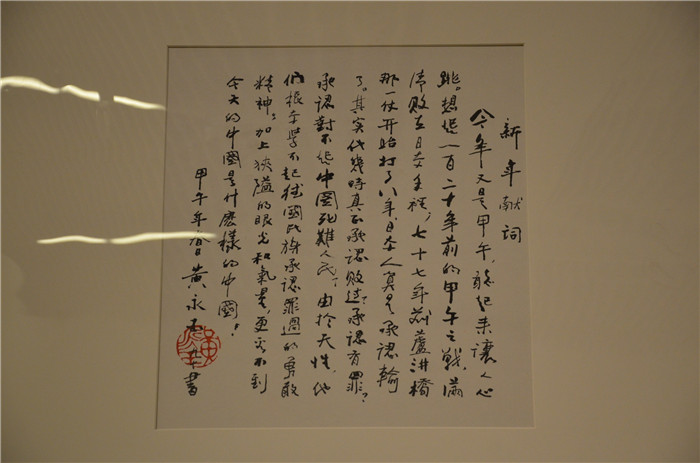 新年献词
今年又是甲午，说起来让人心
跳。想您一百二十年前的甲午之战，满
清败在日本手裡，七十七年前蘆沟橋
那一仗开始打了八年日本人算是承認輸
了。其实他幾時真正承認败过？承認有罪？
承認對不起中國死難人民？由於天性，他
们根本學不起德國民族承認罪過的勇敢
精神；加上狹隘的眼光和氣量，更看不到
今天的中國是什麽樣的中國！
甲午年春黄永玉 書